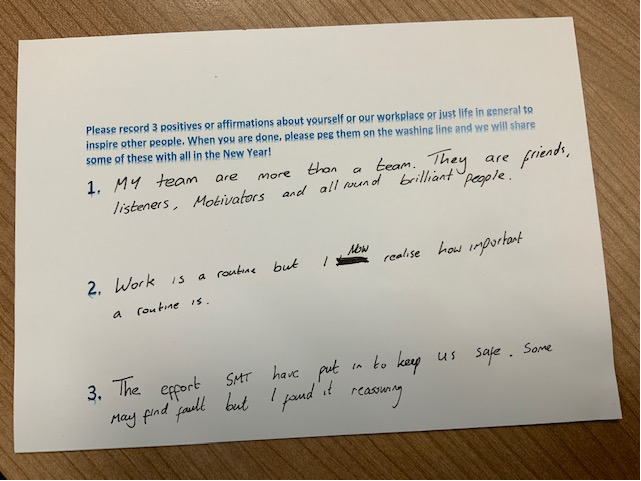 Please record 3 positives or affirmations about yourself or our workplace or just life in general to
inspire other people. When you are done, please peg them on the washing line and we will share
some of these with all in the New Year!
1. MY team are more than a team. They are friends,
listeners, Motivators and all round brilliant people.
2. Work is a routine but I Now realise how important
a routine is.
3. The effort SMT have put in to keep us safe. Some
May find fault but I found it reassuring